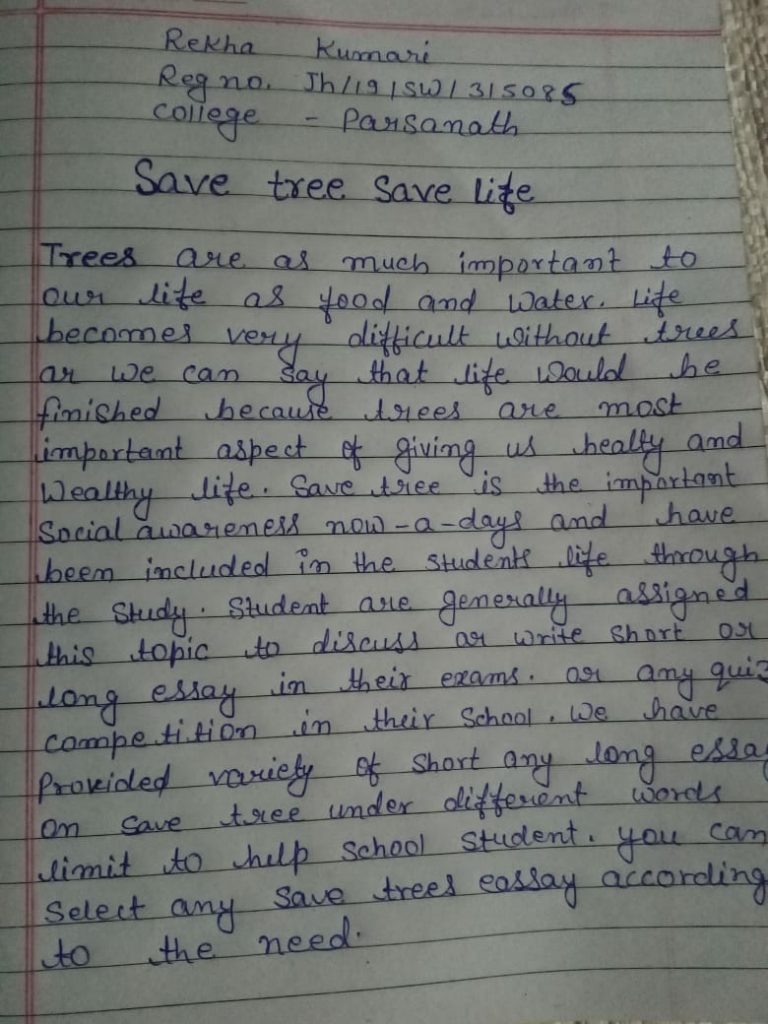 Rekha Kumari
Reg no. Jh/19/SW/315085
College - Parsanath
Save tree Save life
Trees are as much important to
our life as food and water. Life
becomes very difficult without trees
ar we can say that life would be
finished because trees are most
important aspect of giving us healty and
Wealthy life. Save tree is the important
Social awareness now-a-days and have
been included in the students life through
the Study. Student are generally assigned
this topic to discuss ar write short or
long essay in their exams. or any quiz
competition in their School. We have
Provided variety of Short any long essay
on save tree under different words
limit to help School Student. you can
Select any Save trees eassay according
to the need.